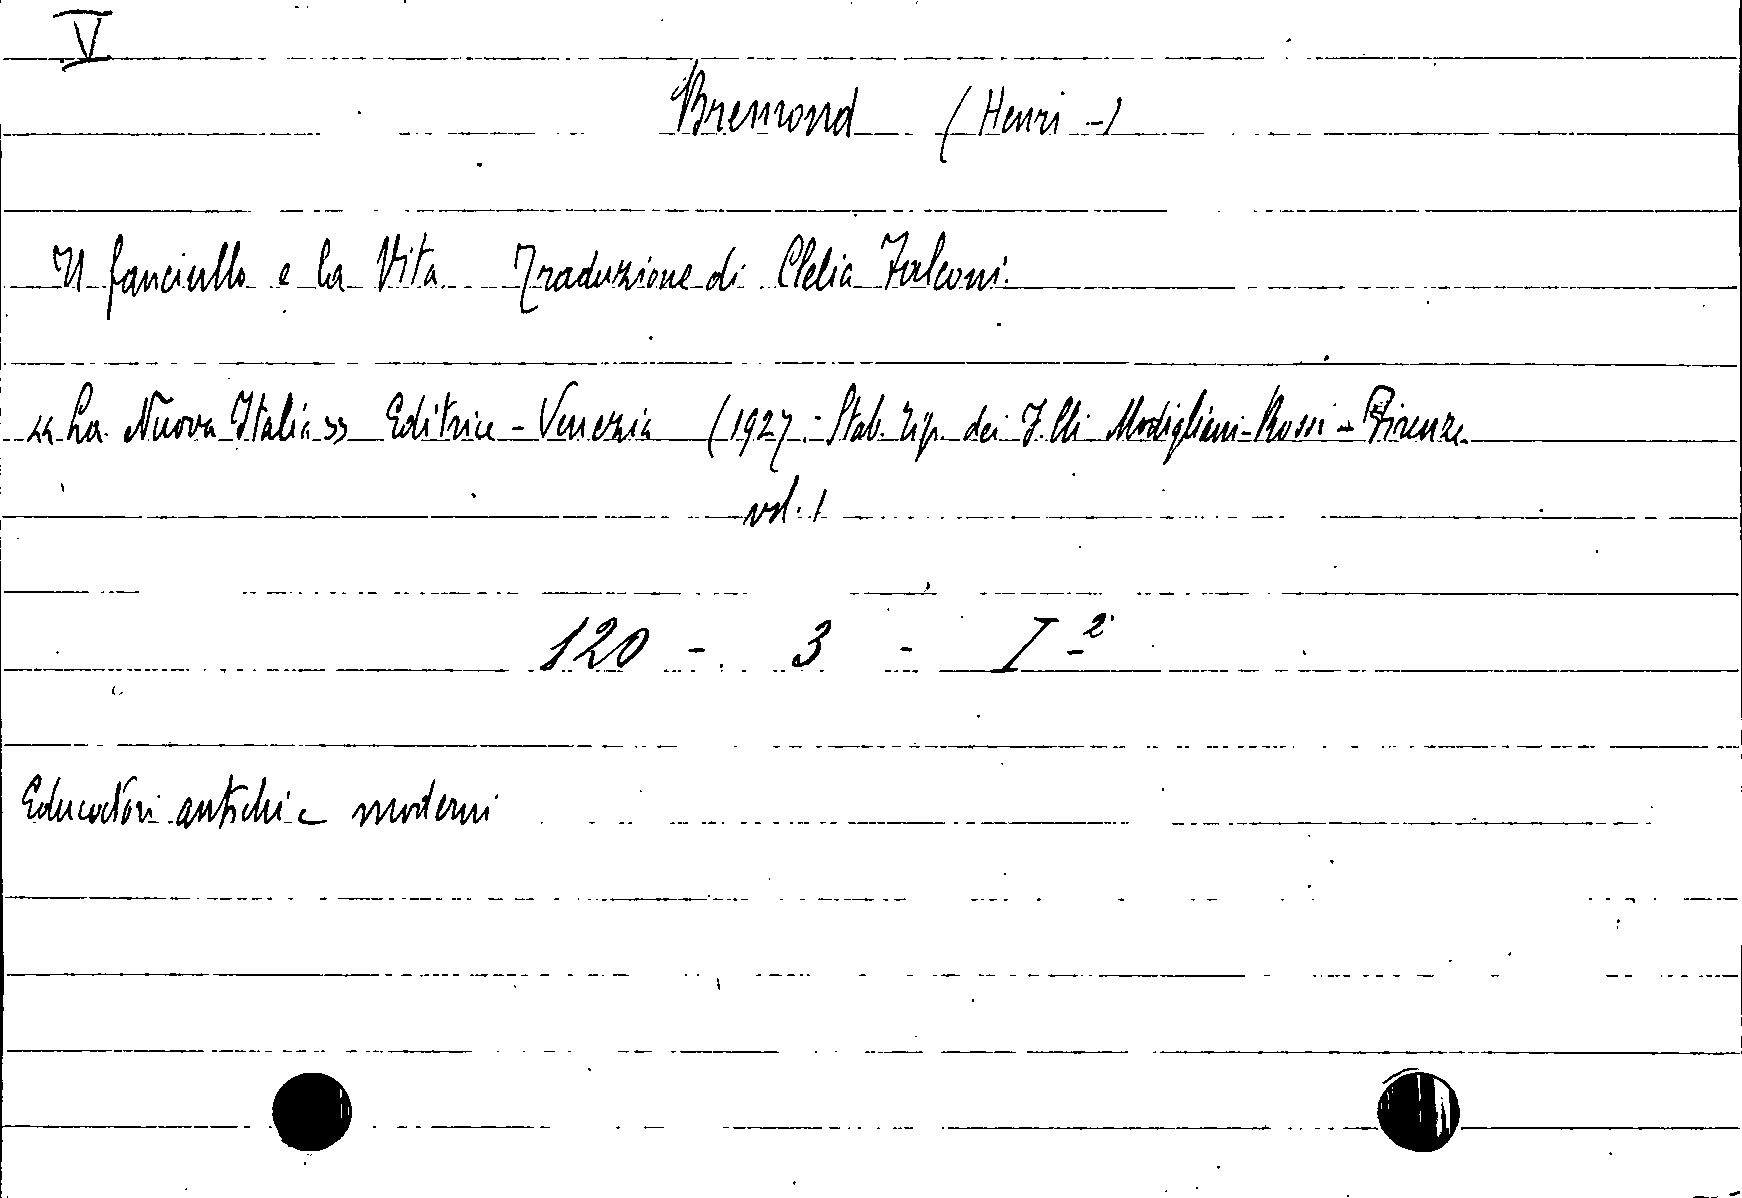 V
Bremond (Henri -)
Il fanciullo e la Vita Traduzione di Clelia Falconi.
«La Nuova Italia» Editrice - Venezia (1927. - Stab. tip. dei F.lli Modigliani-Rossi - Firenze
vol. 1
120 - 3 - I - 2
Educatori antichi e moderni